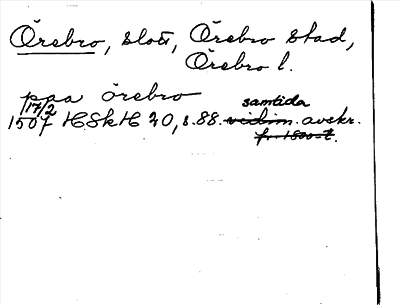 Örebro, slott, Örebro stad,
Örebro l.
ppa örebro
17/2 samtida
1507 HSkH 20, s. 88. vidim. avskr.
fr. 1500-t.